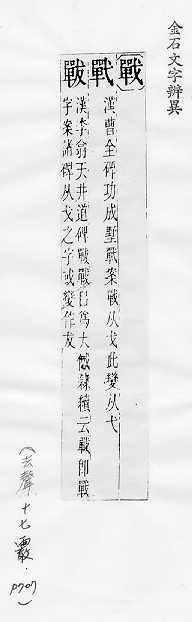 金石文字辨異
戰
漢曹全碑功成墅戰案戰从戈此變从弋
漢李翕天井道碑戰戰㠯爲大憾隸續云戰卽戰
字案諸碑从戈之字或變作犮
(去聲.十七霰.P707)